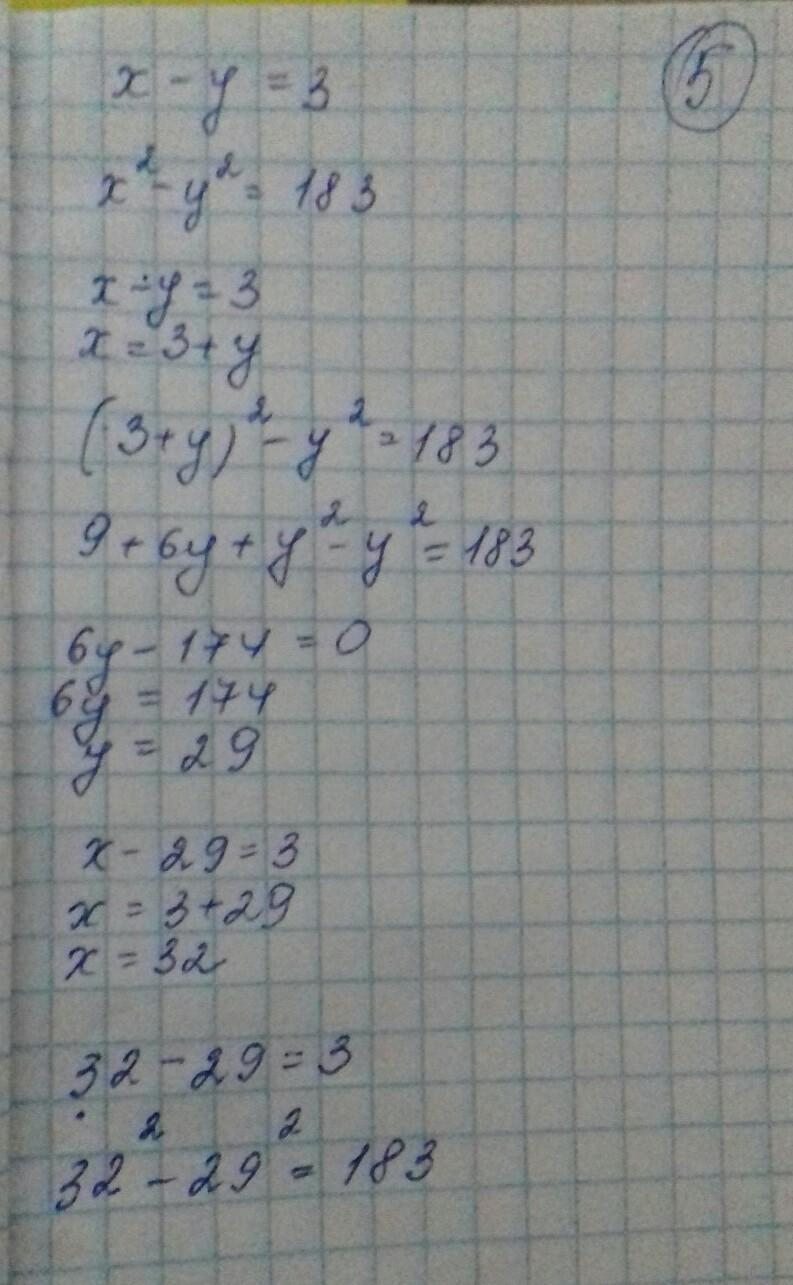 5
x - y = 3
x² - y² = 183
x - y = 3
x = 3 + y
(3+y)² - y² = 183
9 + 6y + y² - y² = 183
6y - 174 = 0
6y = 174
y = 29
x - 29 = 3
x = 3 + 29
x = 32
32 - 29 = 3
32² - 29² = 183